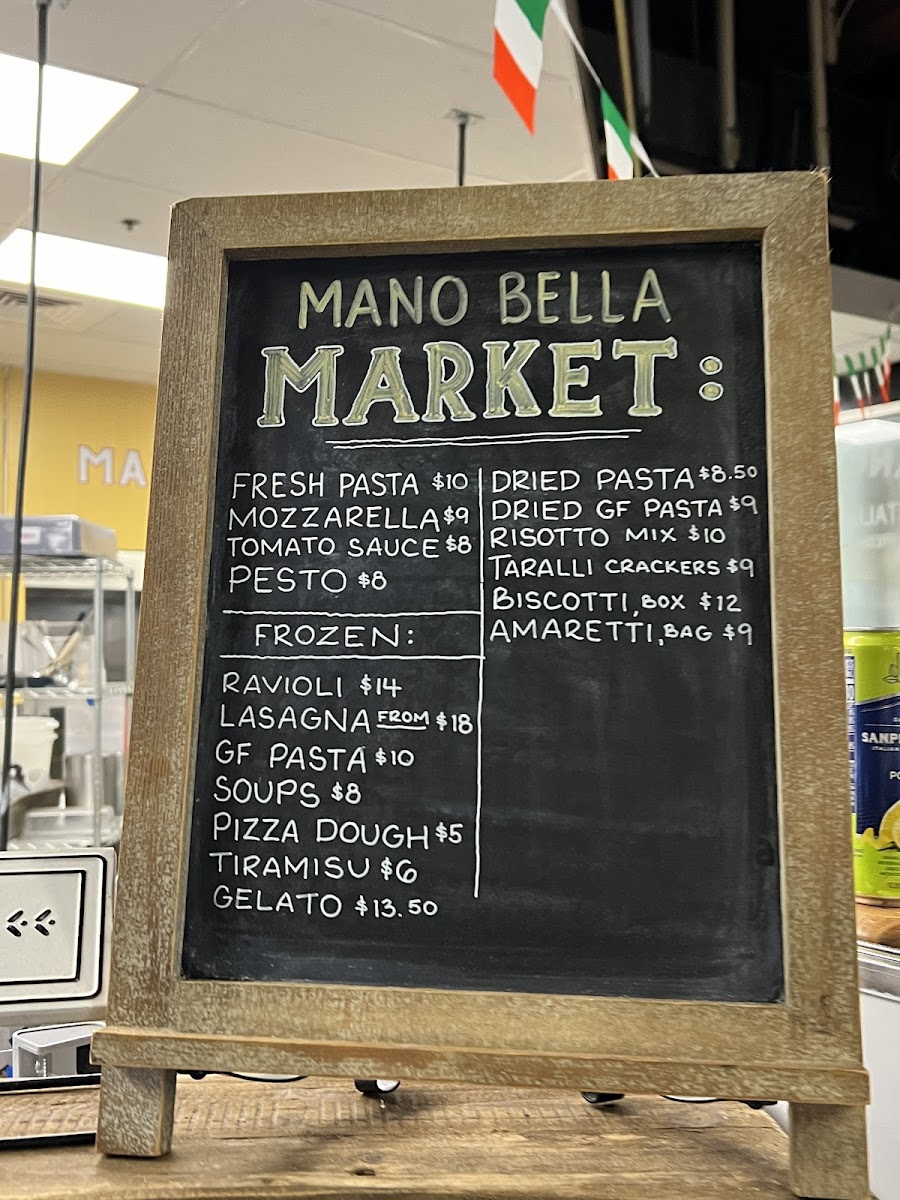 MANO BELLA
MARKET:
FRESH PASTA $10
MOZZARELLA $9
TOMATO SAUCE $8
PESTO $8
FROZEN:
RAVIOLI $14
LASAGNA FROM $18
GF PASTA $10
SOUPS $8
PIZZA DOUGH $5
TIRAMISU $6
GELATO $13.50
DRIED PASTA $8.50
DRIED GF PASTA $9
RISOTTO MIX $10
TARALLI CRACKERS $9
BISCOTTI, BOX $12
AMARETTI, BAG $9
MA
SANP